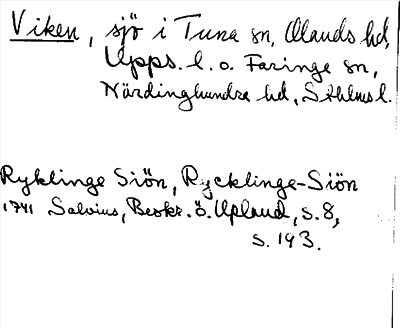 Viken, sjö i Tuna sn, Olands hd,
Upps. l. o. Faringe sn,
Närdinghundra hd, Sthlms l.
Ryklinge Siön, Rycklinge-Siön
1741 Salvius, Beskr. ö. Upland, s. 8,
s. 193.